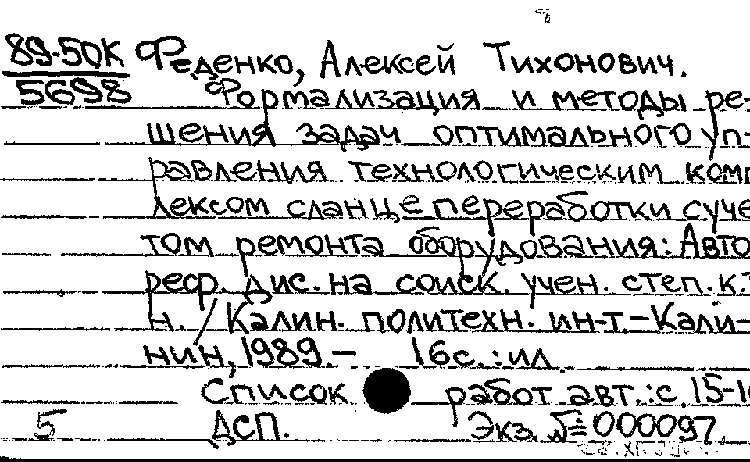 89-50К Феденко, Алексей Тихонович.
5698 Формализация и методы ре-
шения задач оптимального уп-
равления технологическим комп
лексом сланцепереработки с уче
том ремонта оборудования: Авто
реф. дис. на соиск. учен. степ. к.т
н. / Калин. политехн. ин-т. - Кали-
нин, 1989. - 16с. : ил
Список работ авт.: с. 15-1
5 ДСП. Экз. № 000097.